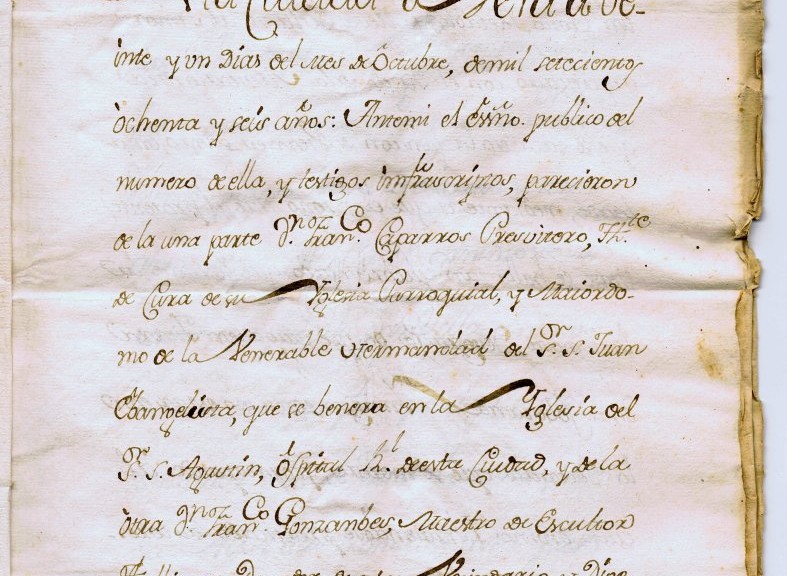 Ciudad a Ve-
inte y un Dias del Mes de Octubre, de mil setecientos
òchenta y seis años: Antemi el essño. publico del
numero de ella, y testigos imfrascriptos, parecieron
de la una parte Dn. Franco. Caparros Presvitero, Thte.
de Cura de su Yglesia Parroquial, y Maiordo-
mo de la Venerable Hermandad del Sr. S. Juan
Ebangelista, que se benera en la Yglesia del
Sr. S. Agustin, òspital Rl. de esta Ciudad, y de la
òtra Dn. Franco. Maestro de Escultor
Vecindario y Dijo